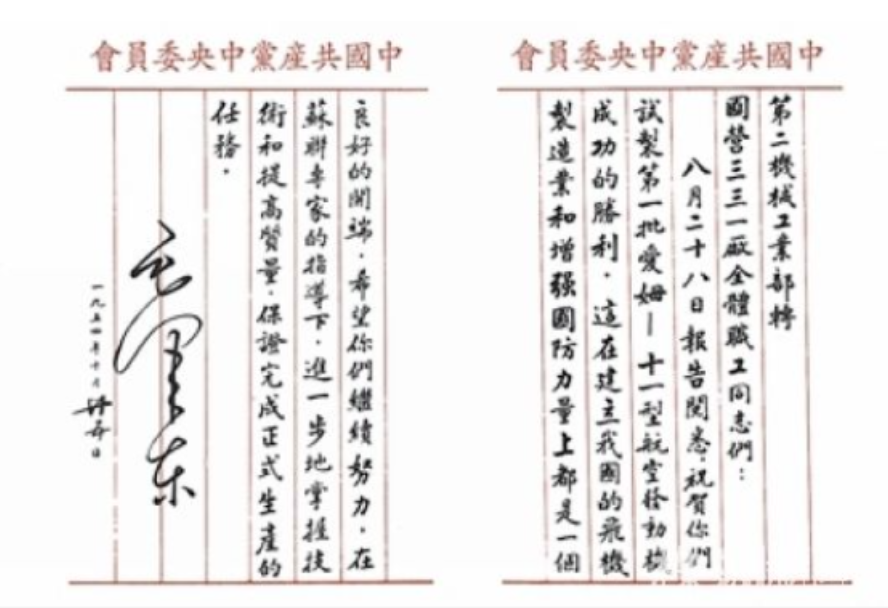 中國共産黨中央委員會
第二機械工業部轉
國營三三一廠全體職工同志們：
八月二十八日報告閱悉，祝賀你們
試製第一批愛姆—十一型航空發動機
成功的勝利。這在建立我國的飛機
製造業和增强國防力量上都是一個
中國共産黨中央委員會
良好的開端。希望你們繼續努力，在
蘇聯專家的指導下，進一步地掌握技
術和提高質量，保證完成正式生產的
任務。
毛澤東
一九五四年十月